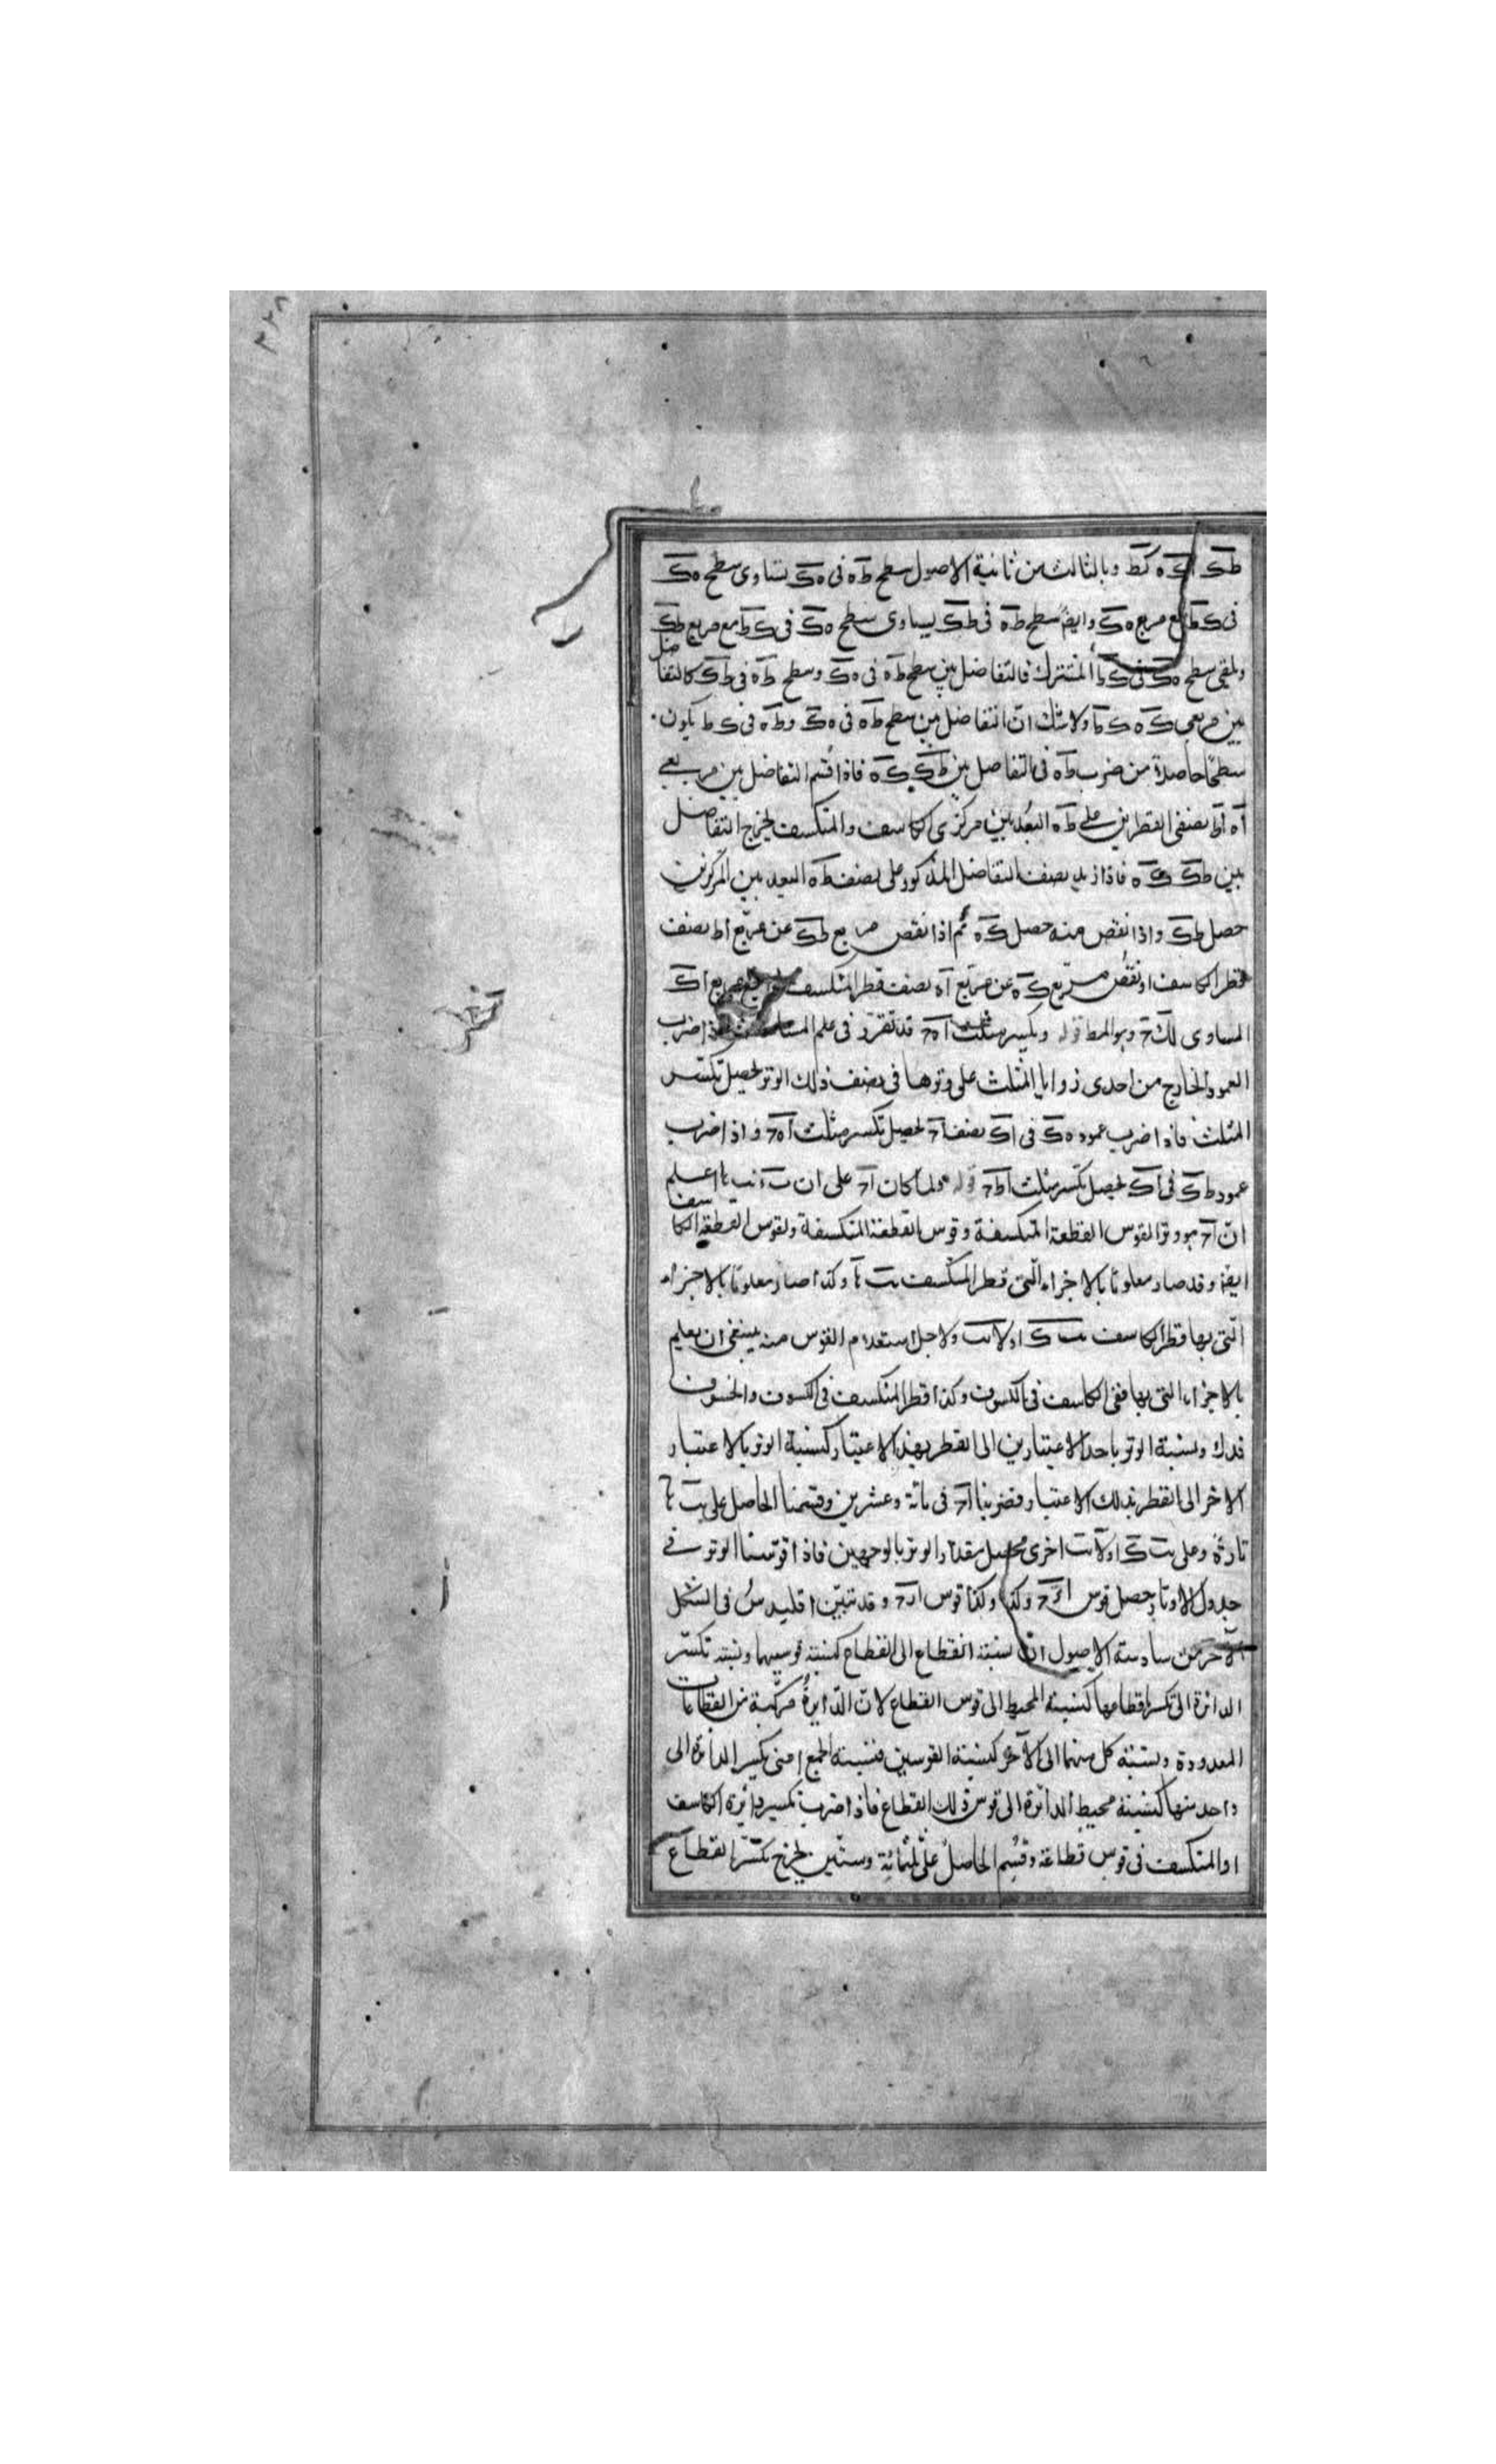 ٣٢٨
طک اک ه کط وبالثالث من ثانیة الاصول سطح طه فی ه ک یساوی سطح ه ک
فی ک ط مع مربع ه ک وایضً سطح طه فی طک یساوی سطح ه ک فی ک ط مع مربع طک
ویلقی سطح ه ک فی ک ط المشترک فالتفاضل بین سطح طه فی ه ک وسطح طه فی طک کالتفاضل
بین مربعی ک ه ک ط ولا شک انّ التفاضل بین سطح طه فی ه ک وطه فی ک ط یکون
سطحًا حاصلا من ضرب طه فی التفاضل بین طک ک ه فاذا قُسم التفاضل بین مربعی
اه اط نصفی القطرین علی طه البُعد بین مرکزی الکاسف والمنکسف یخرج التفاضل
بین طک ک ه فاذا زید نصف التفاضل المذکور علی نصف طه البعد بین المرکزین
حصل طک واذا نقص منه حصل ک ه ثم اذا نقص مربع طک عن مربّع اط نصف
قطر الکاسف او نقُص مربّع ک ه عن مربّع اه نصف قطر المنکسف مربع اک
المساوی لک ح وهو المط قوله وتکسیر مثلث ا ه ح قد تقرّر فی علم المساحة اذا ضرب
العمود الخارج من احدی زوایا المثلث علی وترها فی نصف ذلک الوتر یحصل تکسیر
المثلث فاذا ضرب عمود ه ک فی اک نصف اح یحصل تکسیر مثلث ا ه ح واذا ضرب
عمود ط ک فی اک یحصل تکسیر مثلث اط ح قوله ولما کان اح علی ان اعلم
انّ اح هو وتر القوس القطعة المنکسفة وقوس القطعة المنکسفة ولقوس القطعة الکاسف
ایضًا وقد صار معلومًا بالاجزاء الّتی قطر المنکسف وکذا صار معلومًا بالاجزاء
الّتی بها قطر الکاسف ولاجل استعلام القوس منه ینبغی ان یعلم
بالاجزاء التی بها الکاسف فی الکسوف وکذا قطر المنکسف فی الکسوف والخسوف
ونسبة الوتر باحد الاعتبارین الی القطر بهذا الاعتبار کنسبة الوتر بالاعتبار
الاخر الی القطر بذلک الاعتبار فضربنا اح فی مائة وعشرین وقسمنا الحاصل علی
تارةً وعلی اخری یحصل مقدار الوتر بالوجهین فاذا قوّسنا الوتر فی
جدول الاوتار حصل قوس وکذا وکذا قوس وقد تبیّن اقلیدسُ فی الشکل
الآخر من سادسة الاصول انّ نسبة القطاع الی القطاع کنسبة قوسیهما ونسبة تکسیر
الدائرة الی تکسیر قطاعها کنسبة المحیط الی قوس القطاع لانّ الدّایرةُ مرکّبة من القطاعات
المعدودة ونسبة کل منهما الی الآخر کنسبة القوسین فنسبة الجمیع اعنی تکسیر الدائرة الی
واحد منها کنسبة محیط الدائرة الی قوس ذلک القطاع فاذا ضرب تکسیر دائرة الکاسف
او المنکسف فی قوس قطاعه وقُسم الحاصلُ علی ثلثمائة وستّین یخرج تکسیر القطاع